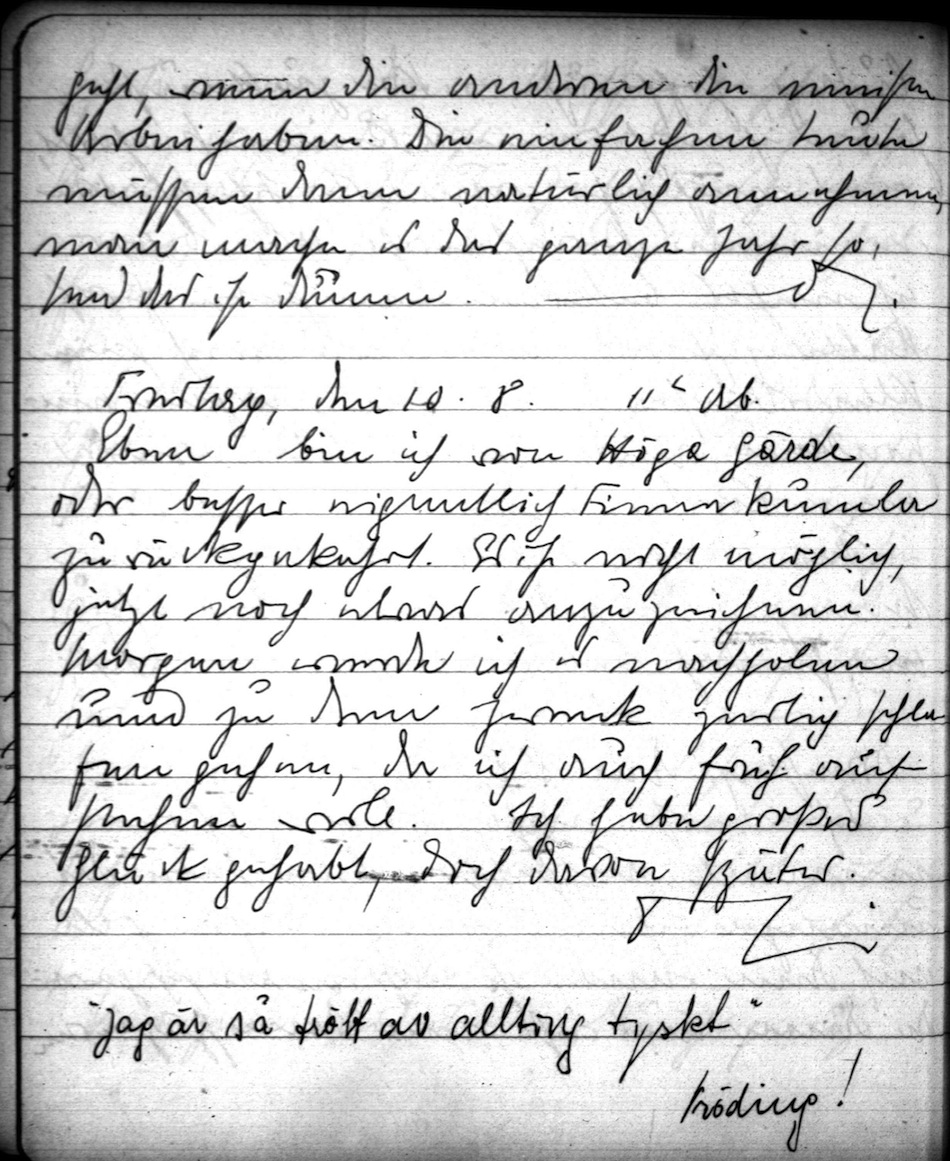 geht, wenn die anderen die meiste
Arbeit haben. Die einfachen Leute
müssen dann natürlich annehmen,
man mache es das ganze Jahr so,
und das ist dumm.
Freitag, den 10. 8. 11 ab.
Eben bin ich von Höga Gärde,
oder besser eigentlich Finnakumla
zurückgekehrt. Es ist nicht möglich,
jetzt noch etwas aufzuzeichnen.
Morgen werde ich es nachholen
und zu dem Zweck zeitig schla
fen gehen, da ich auch früh auf
stehen will. Ich habe großes
Glück gehabt, doch davon später.
"Jag är så trött av allting tyskt"
Fröding!